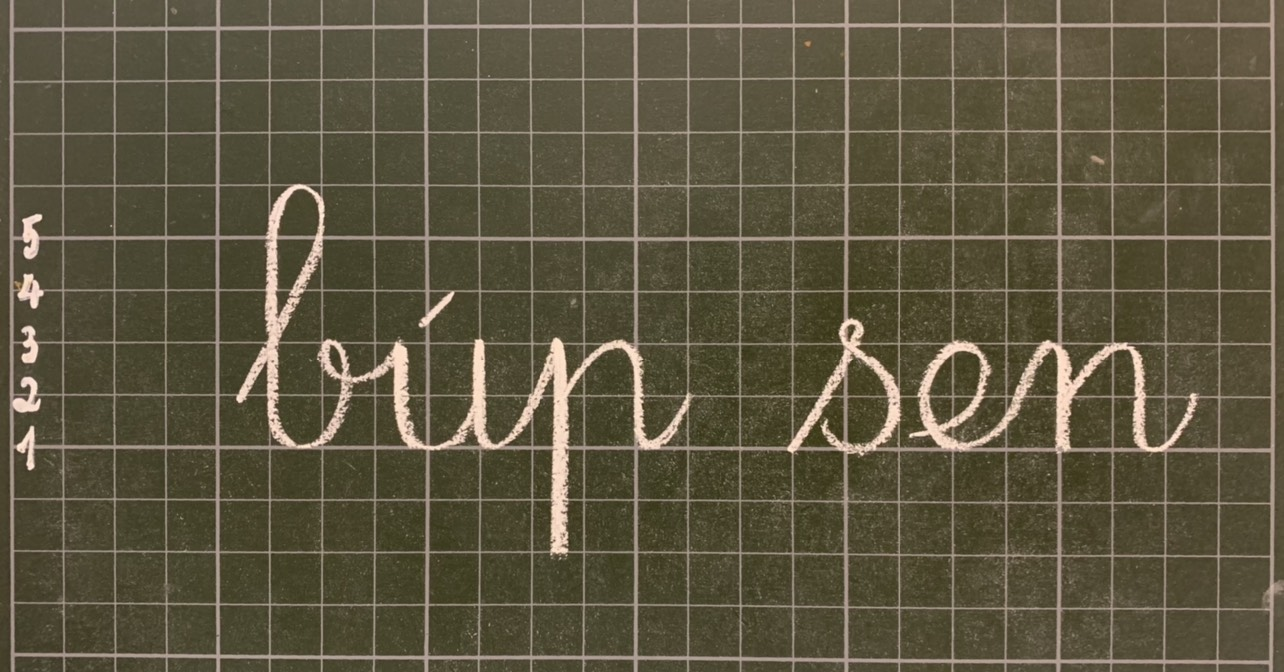 5
4
3
2
1
búp sen